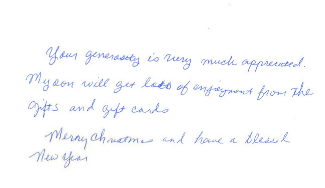 Your generosity is very much appreciated.
My son will get lots of enjoyment from the
gifts and gift cards
Merry Christmas and have a blessed
New Year